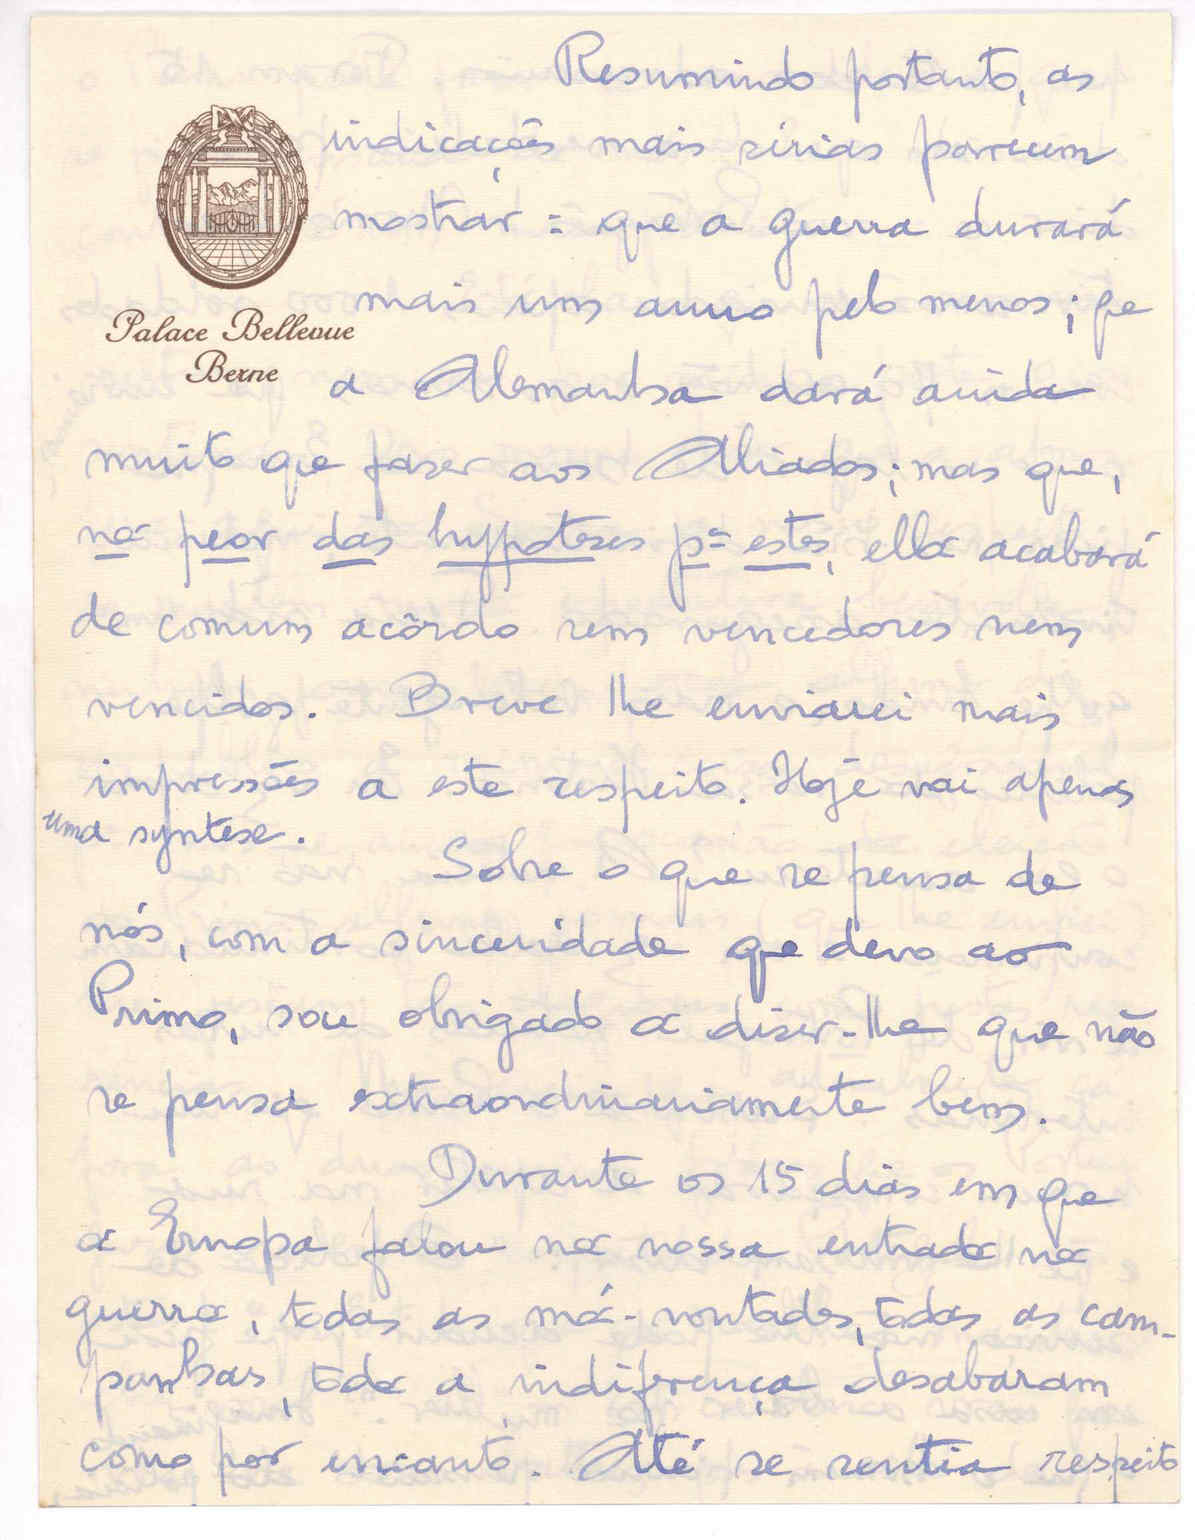 Resumindo portanto, as
indicações mais sérias parecem
mostrar: que a guerra durará
mais um anno pelo menos; qe
Palace Bellevue
Berne
a Alemanha dará ainda
muito que faser aos Aliados; mas que,
na peor das hypoteses pª estes, ella acabará
de comum acôrdo sem vencedores nem
vencidos. Breve lhe enviarei mais
impressões a este respeito. Hoje vai apenas
uma syntese.
Sobre o que se pensa de
nós, com a sinceridade que devo ao
Primo, sou obrigado a diser-lhe que não
se pensa extraordinariamente bem.
Durante os 15 dias em que
a Europa falou na nossa entrada na
guerra, todas as má-vontades, todas as cam-
panhas, toda a indiferença desabaram
como por encanto. Até se sentia respeito